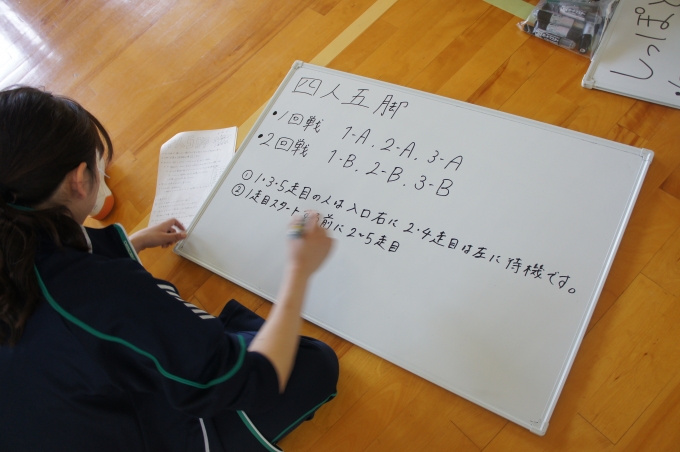 四人五脚
•1回戦 1-A. 2-A. 3-A
•2回戦 1-B. 2-B. 3-B
①1・3・5走目の人は入口右に 2・4走目は左に待機です。
②1走目スタート 前に2~5走目
しっぽ